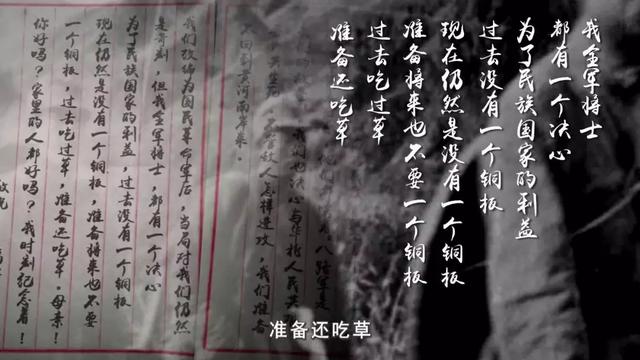 我全军将士
都有一个决心
为了民族国家的利益
过去没有一个铜板
现在仍然是没有一个铜板
准备将来也不要一个铜板
过去吃过草
准备还吃草
我们改编为国民革命军后，当局对我们仍然
是苛刻，但我全军将士，都有一个决心
为了民族国家的利益，过去没有一个铜板
现在仍然是没有一个铜板，准备将来也不要
一个铜板，过去吃过草，准备还吃草。母亲！
你好吗？家里的人都好吗？我时刻记念着！
准备还吃草